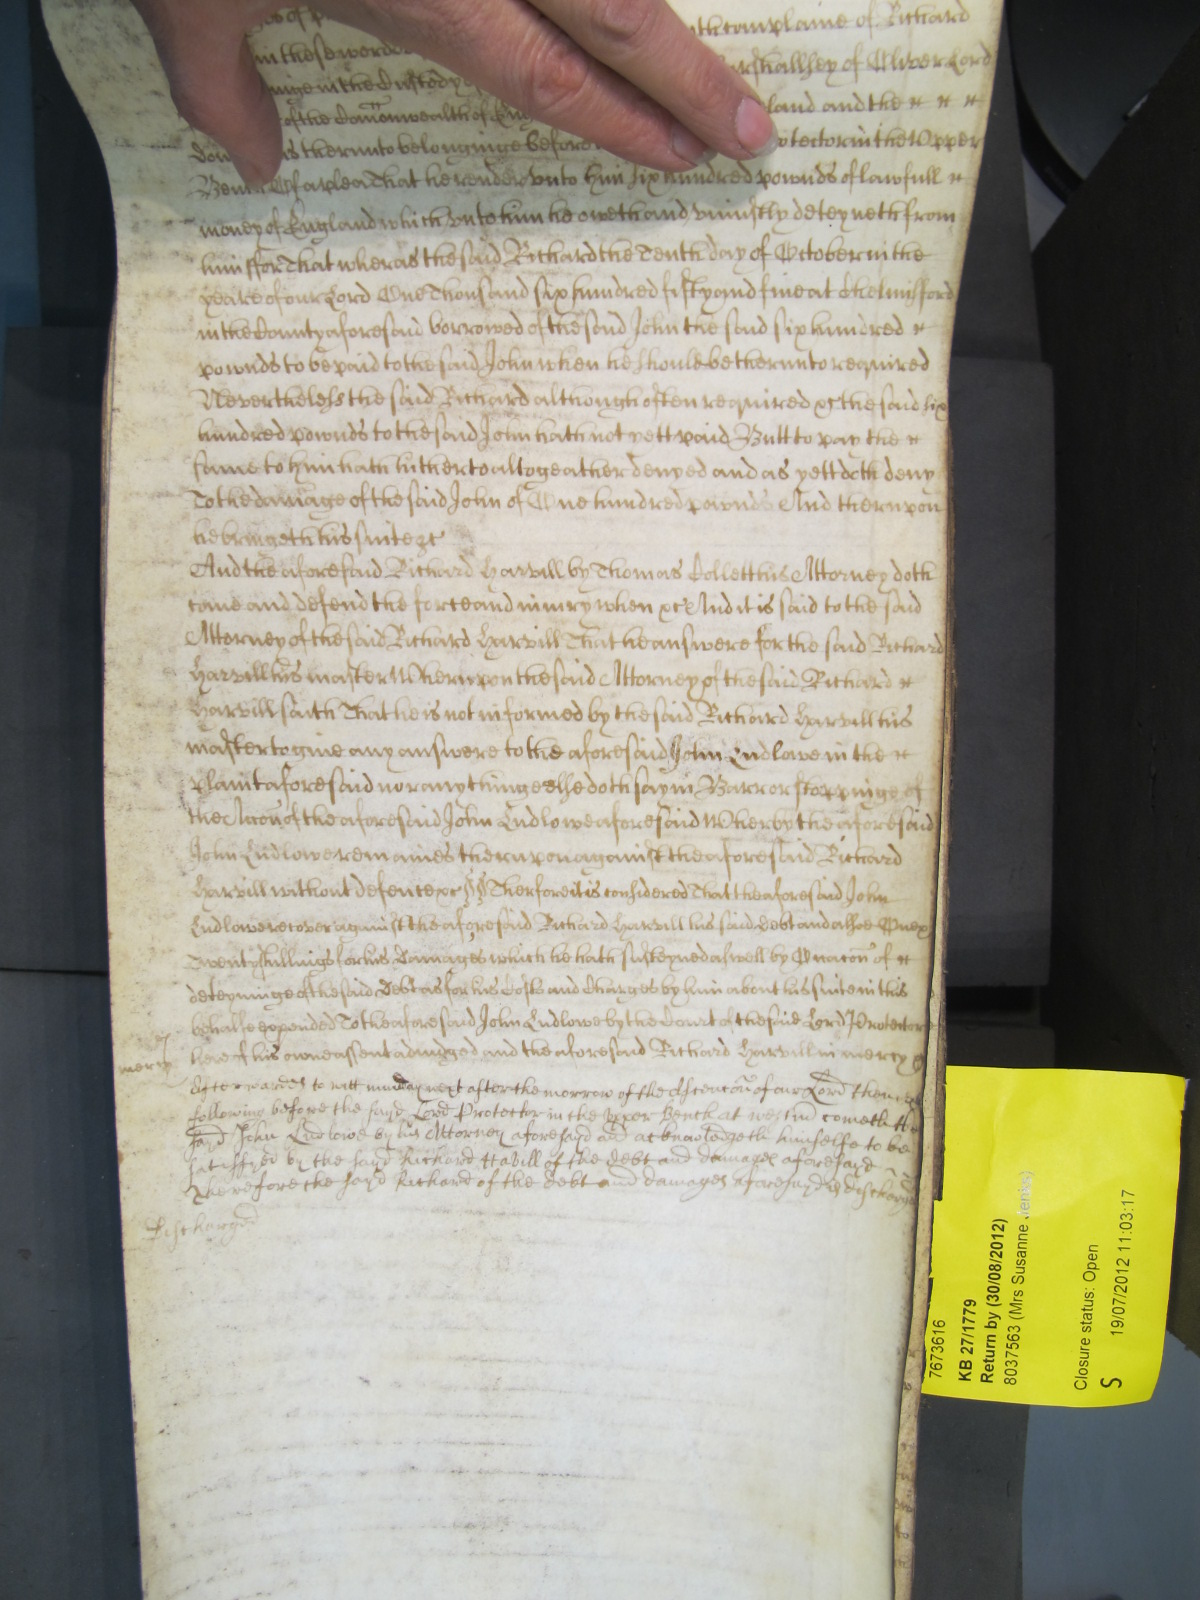 the complaine of Richard
in these words
Marshallsey of Oliver Lord
beinge in the Custody
of the Comonwealth of land and the
therunto belonginge before Protector in the Upper
Bench Of a plea That he render unto him six hundred pownds of lawfull
money of England which unto him he oweth and uniustly deteyneth from
him ffor That wheras the said Richard the Tenth day of October in the
yeare of our Lord One Thousand six hundred fifty and five at Chelmisford
in the County aforesaid borrowed of the said John the said six hundred
pownds to be paid to the said John when he should be therunto required
Neverthelesse the said Richard although often required &c the said six
hundred pownds to the said John hath not yett paid Butt to pay the
same to him hath hitherto altogeather denyed and as yett doth deny
To the damage of the said John of One hundred pownds And therupon
he bringeth his suite &c
And the aforesaid Richard Harvill by Thomas Collett his Attorney doth
come and defend the force and iniury when &c And it is said to the said
Attorney of the said Richard Harvill That he answere for the said Richard
Harvill his master Wherupon the said Attorney of the said Richard
Harvill saith That he is not informed by the said Richard Harvill his
master to give any answere to the aforesaid John Ludlowe in the
plaint aforesaid nor any thinge else doth say in Barr or stoppinge of
the Accon of the aforesaid John Ludlowe aforesaid Wherby the aforesaid
John Ludlowe remaines therupon against the aforesaid Richard
Harvill without defence &c Therfore it is considered That the aforesaid John
Ludlowe recover against the aforesaid Richard Harvill his said Debt and alsoe
Twenty shillings for his Damages which he hath susteyned as well by Occacon of
deteyninge of the said Debt as for his Costs and Charges by him about his suite in this
behalfe expended To the aforesaid John Ludlowe by the Court of the said Lord Protector
here of his owne assent adiudged and the aforesaid Richard Harvill in mercy &c
mercy
Afterwards to witt munday next after the morrow of the Ascencon of our Lord then next
following before the sayd Lord Protector in the Upper Bench at westm cometh the
sayd John Ludlowe by his Attorney aforesayd and acknowledgeth himselfe to be
satisfyed by the sayd Richard Havill of the debt and damages aforesayd
Therefore the sayd Richard of the debt and damages aforesayd is discharged
Discharged
7673616
KB 27/1779
Return by (30/08/2012)
8037563 (Mrs Susanne Jenks)
Closure status: Open
S 19/07/2012 11:03:17